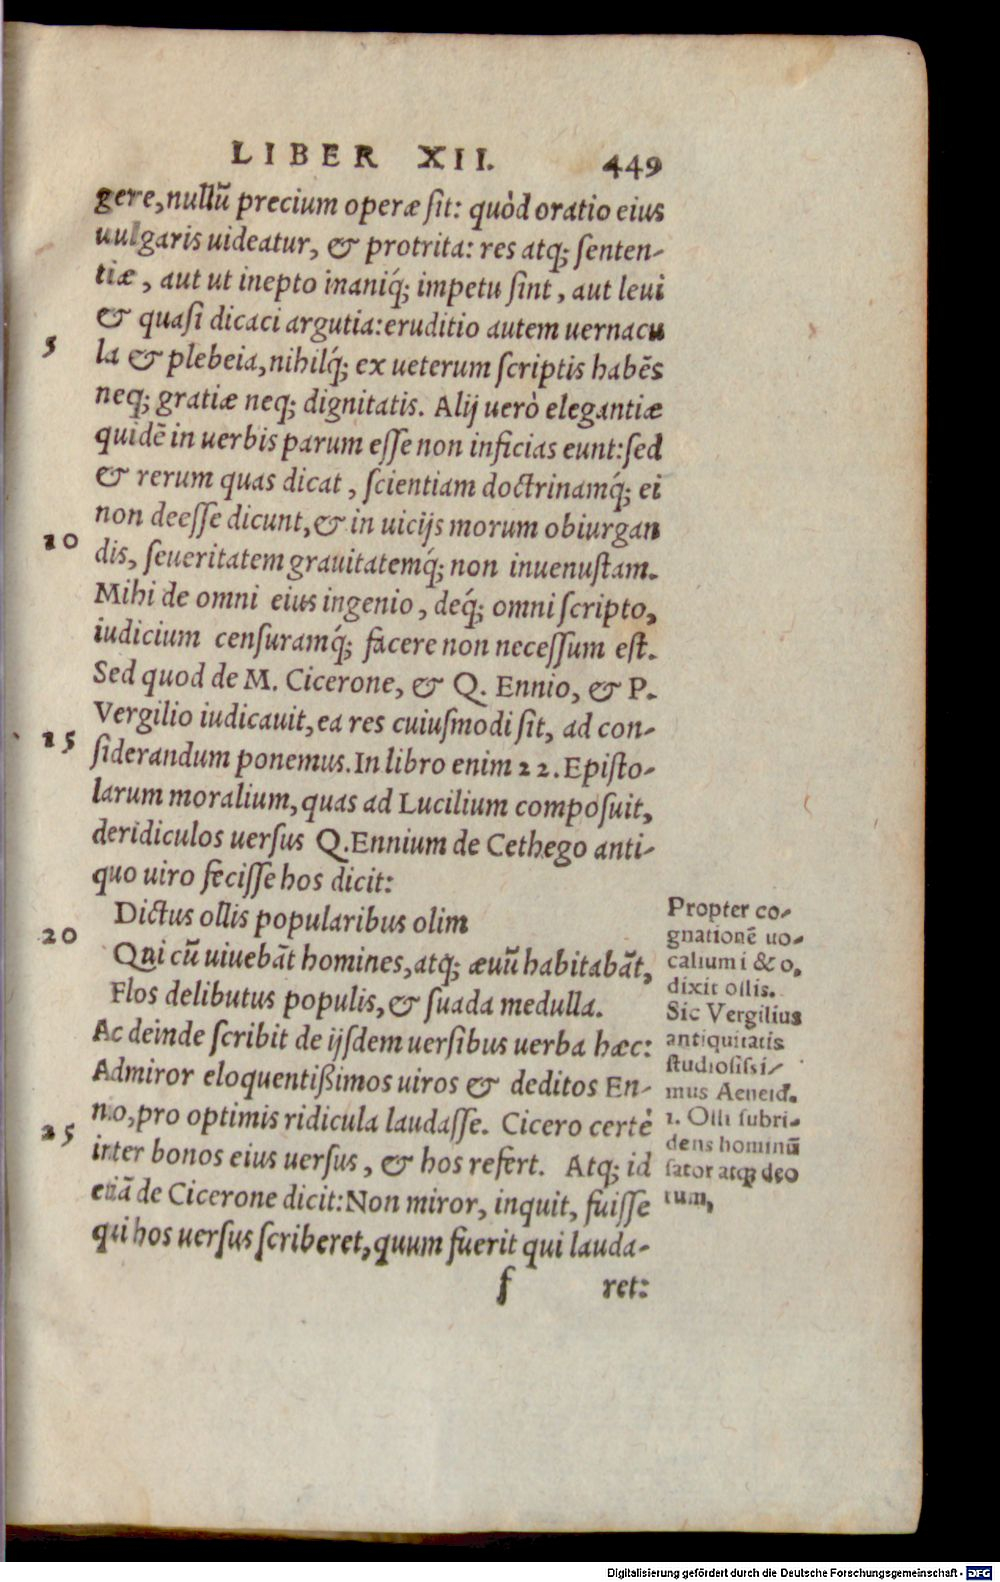 LIBER XII. 449
gere, nullū precium operæ ſit: quòd oratio eius
uulgaris uideatur, & protrita: res atq; ſenten-
tiæ, aut ut inepto inaniq́; impetu ſint, aut leui
& quaſi dicaci argutia: eruditio autem uernacu
5 la & plebeia, nihilq́; ex ueterum ſcriptis habēs
neq; gratiæ neq; dignitatis. Alij uerò elegantiæ
quidē in uerbis parum eſſe non inficias eunt: ſed
& rerum quas dicat, ſcientiam doctrinamq́; ei
non deeſſe dicunt, & in uicijs morum obiurgan
10 dis, ſeueritatem grauitatemq́; non inuenuſtam.
Mihi de omni eius ingenio, deq́; omni ſcripto,
iudicium cenſuramq́; facere non neceſſum eſt.
Sed quod de M. Cicerone, & Q. Ennio, & P.
Vergilio iudicauit, ea res cuiuſmodi ſit, ad con-
15 ſiderandum ponemus. In libro enim 22. Epiſto-
larum moralium, quas ad Lucilium compoſuit,
deridiculos uerſus Q. Ennium de Cethego anti-
quo uiro feciſſe hos dicit:
Dictus ollis popularibus olim
20 Qui cū uiuebāt homines, atq; æuū habitabāt,
Flos delibutus populis, & ſuada medulla.
Ac deinde ſcribit de ijſdem uerſibus uerba hæc:
Admiror eloquentißimos uiros & deditos En-
nio, pro optimis ridicula laudaſſe. Cicero certè
25 inter bonos eius uerſus, & hos refert. Atq; id
etiā de Cicerone dicit: Non miror, inquit, fuiſſe
qui hos uerſus ſcriberet, quum fuerit qui lauda-
f ret:
Propter co-
gnationē uo-
calium i & o,
dixit ollis.
Sic Vergilius
antiquitatis
ſtudioſiſsi-
mus Aeneid.
1. Olli ſubri-
dens hominū
ſator atq; deo
rum,
Digitalisierung gefördert durch die Deutsche Forschungsgemeinschaft - DFG